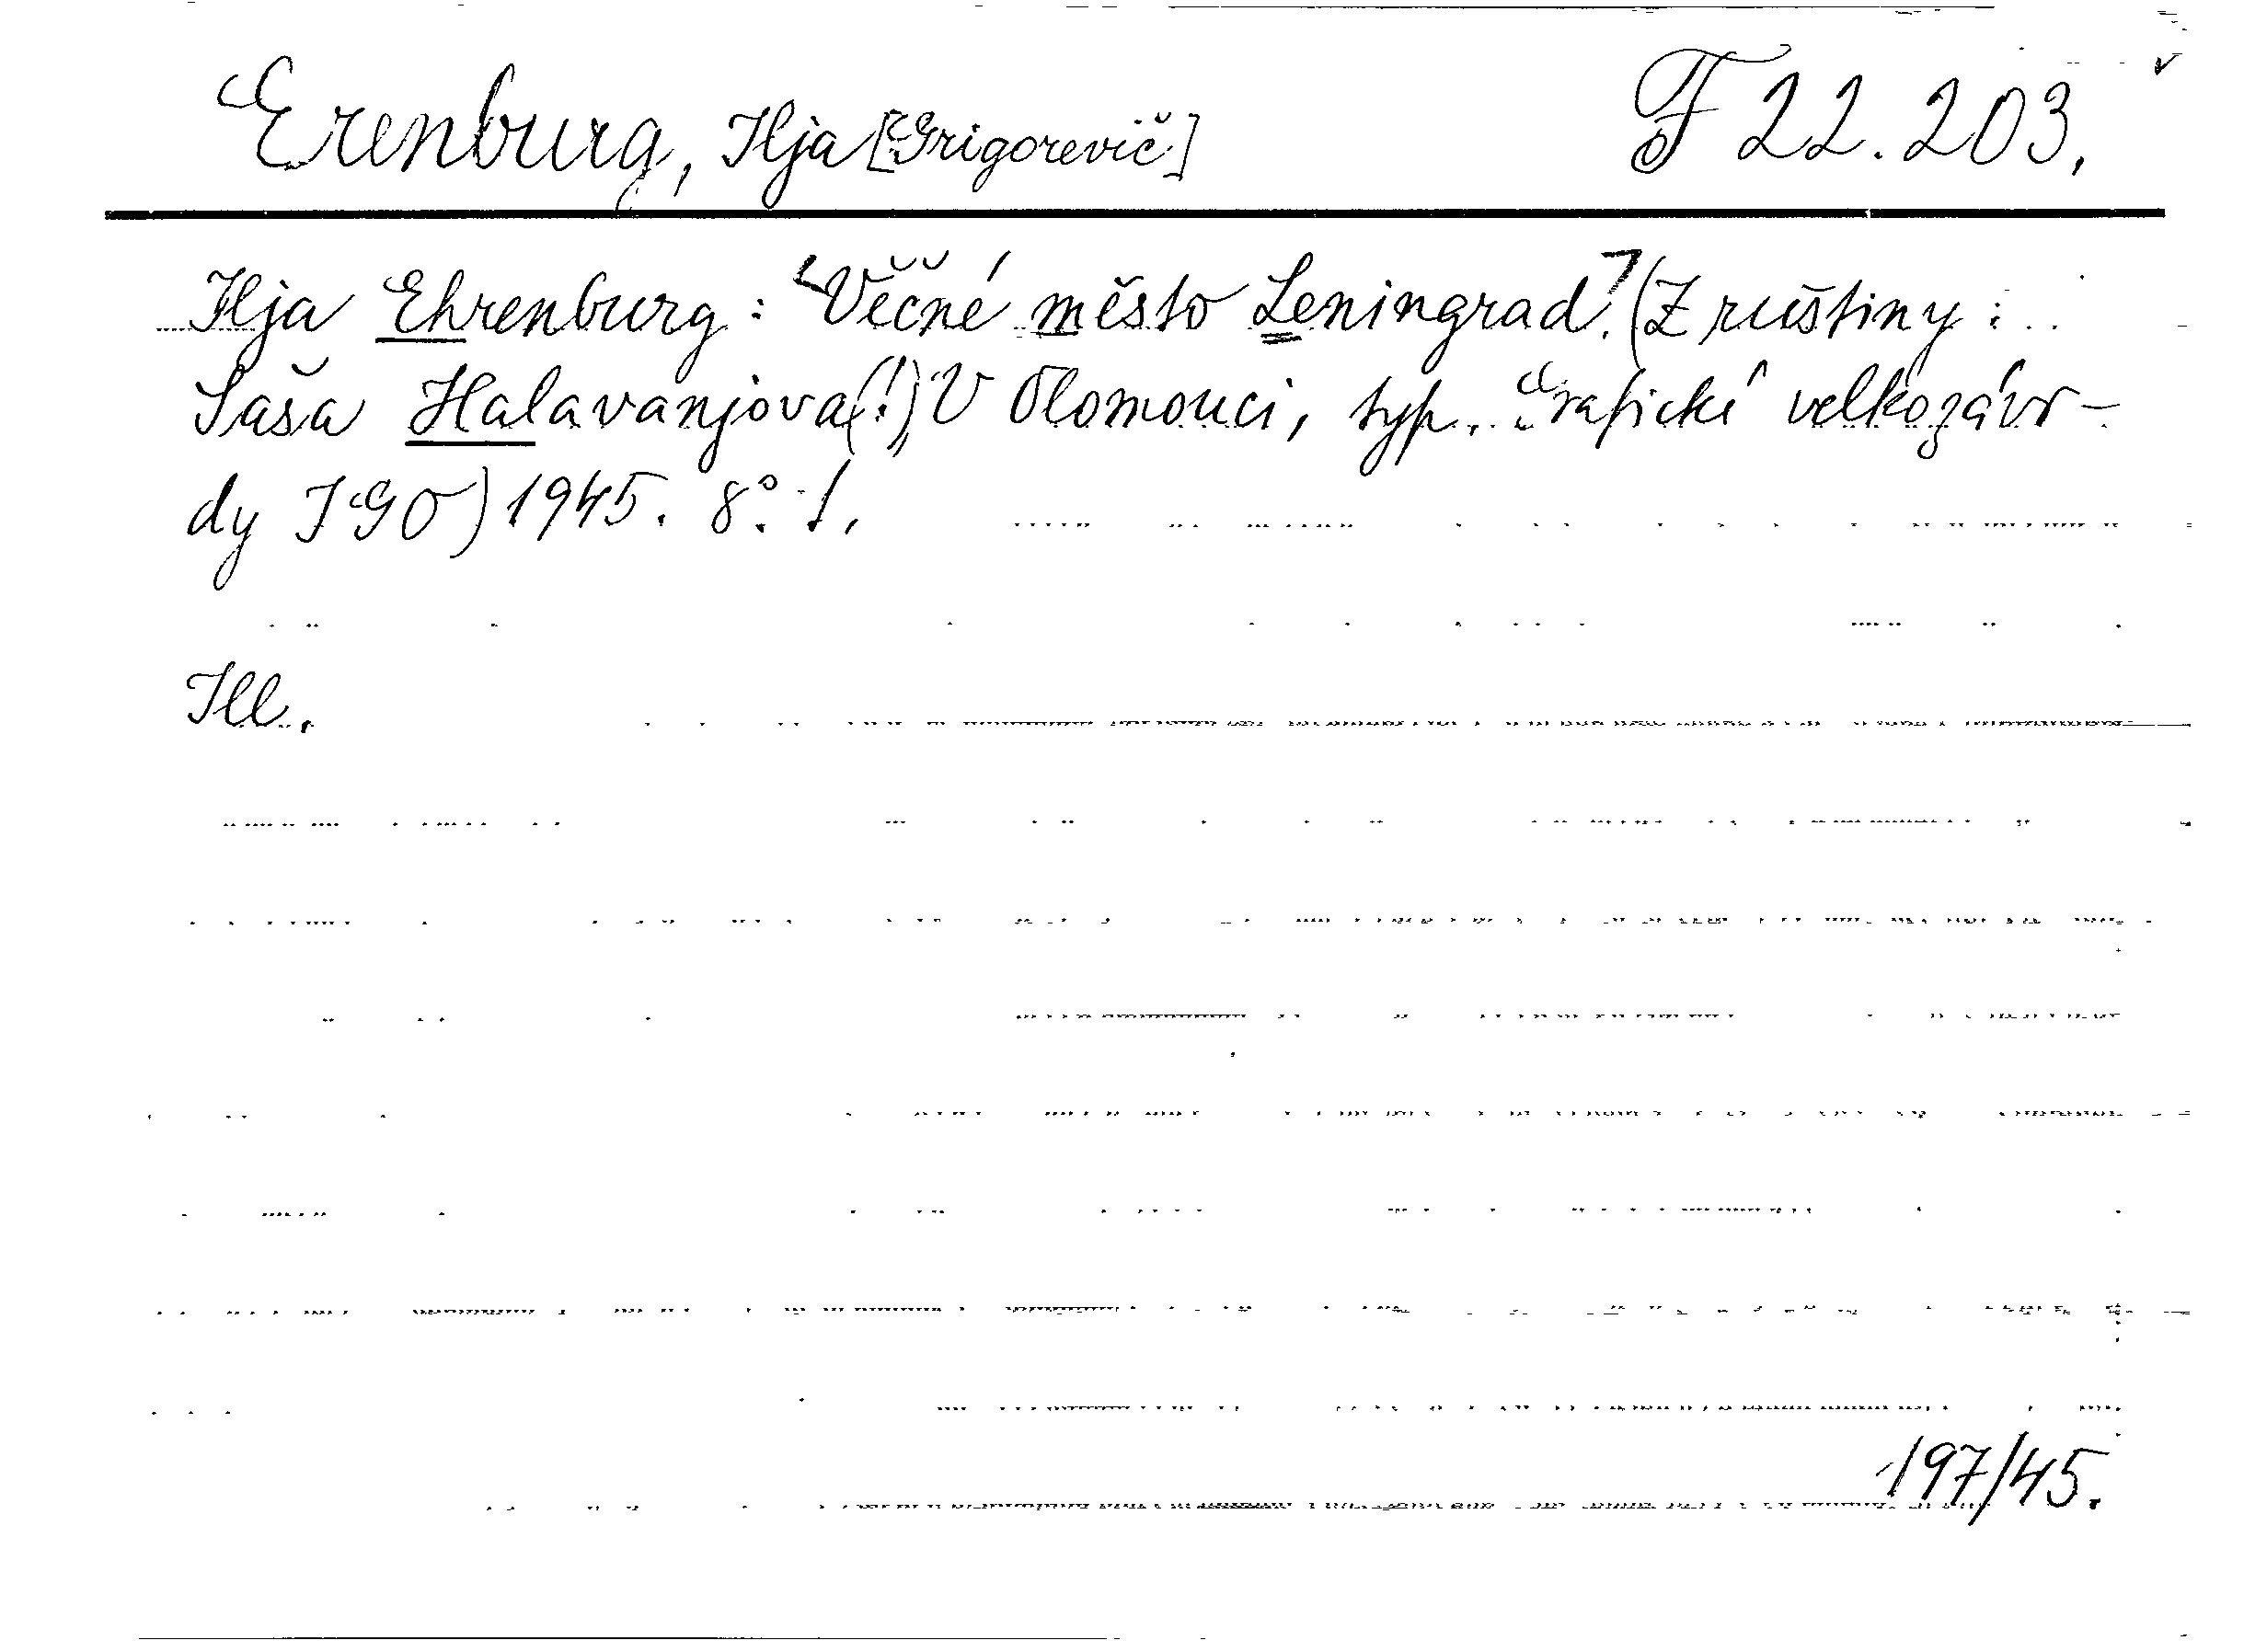 Erenburg, Ilja [Grigorevič] F 22.203.
Ilja Ehrenburg: "Věčné město Leningrad". (Z ruštiny:
Saša Halavanjova(!), V Olomouci, typ. Grafické velkozávo-
dy IGO) 1945. 8°. 1.
Ill.
197/45.